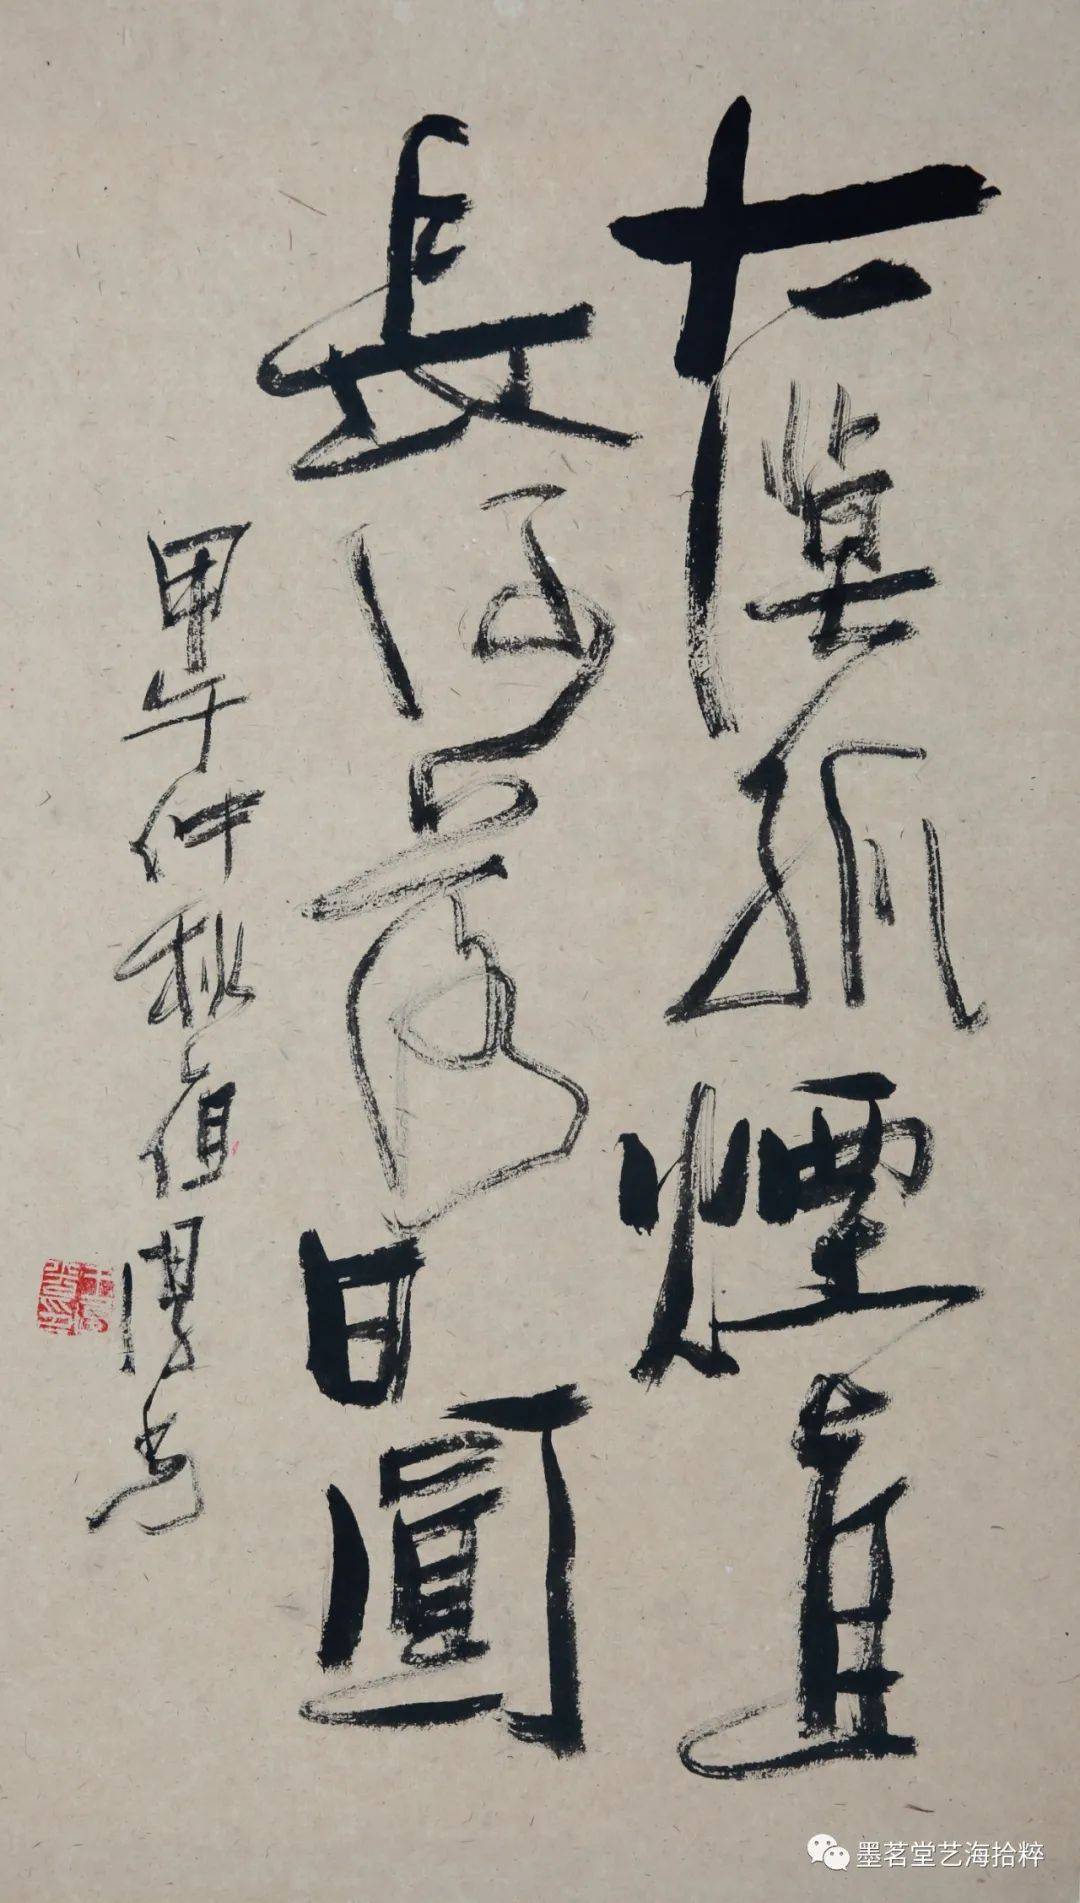 大漠孤煙直
長河落日圓
甲午仲秋值周
墨茗堂艺海拾粹